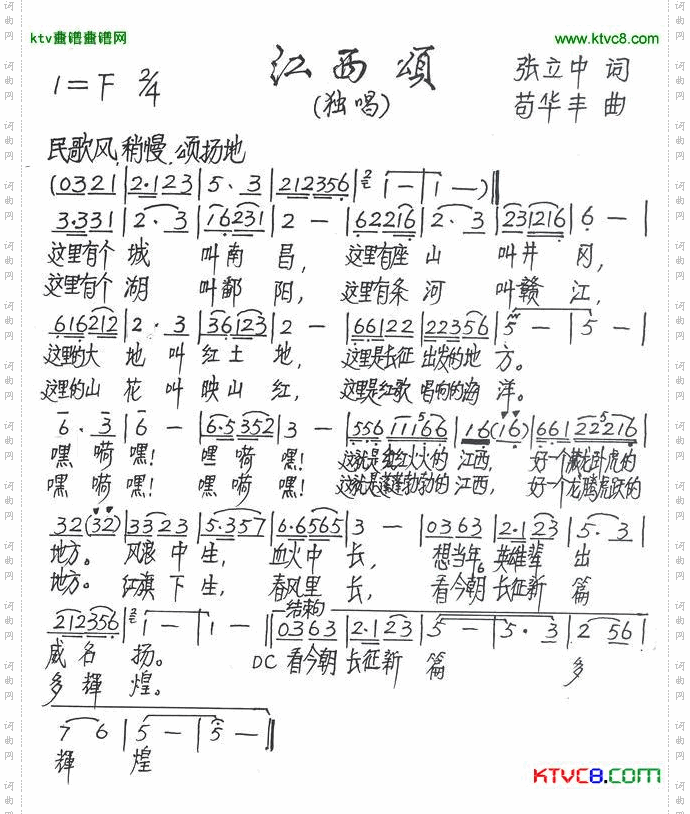 ktv歌谱歌谱网
www.ktvc8.com
江西頌
(独唱)
1=F 2/4
张立中 词
苟华丰 曲
民歌风,稍慢,颂扬地
(0321|2·123|5·3|212356|1-|1-)‖
3·331|2·3|16231|2-|62216|2·3|231216|6-|
这里有个 城 叫南 昌, 这里有座 山 叫井 冈,
这里有个 湖 叫鄱 阳, 这里有条 河 叫赣 江,
616212|2·3|36123|2-|66122|22356|5-|5-|
这里的大 地 叫 红土 地, 这里是长征 出发的地 方。
这里的山 花 叫 映山 红, 这里是红歌 唱响的海 洋。
6·3|6-|6·5352|3-|556 11166|16(16)|661 225216|
嘿 嗬 嘿! 嘿 嗬 嘿! 这就是红红火火的 江西, 好一个藏龙卧虎的
嘿 嗬 嘿! 嘿 嗬 嘿! 这就是蓬蓬勃勃的 江西, 好一个龙腾虎跃的
32(32)|3323|5·357|6·6565|3-|0363|2·123|5·3|
地方。 风浪 中 生, 血火中 长, 想当年。英雄辈 出
地方。 红旗 下 生, 春风里 长, 看今朝 长征新 篇
结束句
212356|1-|1-‖0363|2·123|5-|5·3|2 56|
威 名 扬。 DC 看今朝 长征新 篇 多
多 輝 煌。
7 6|5-|5-‖
輝 煌
KTVC8.COM